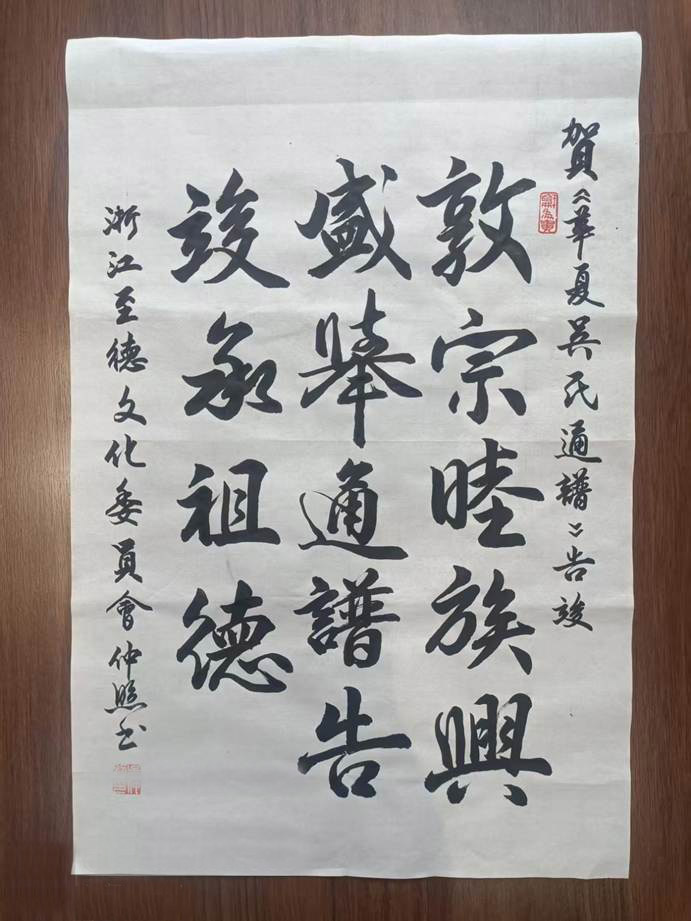 賀《華夏吳氏通譜》告竣
敦宗睦族興
盛舉通譜告
竣承祖德
浙江至德文化委員會仲照书